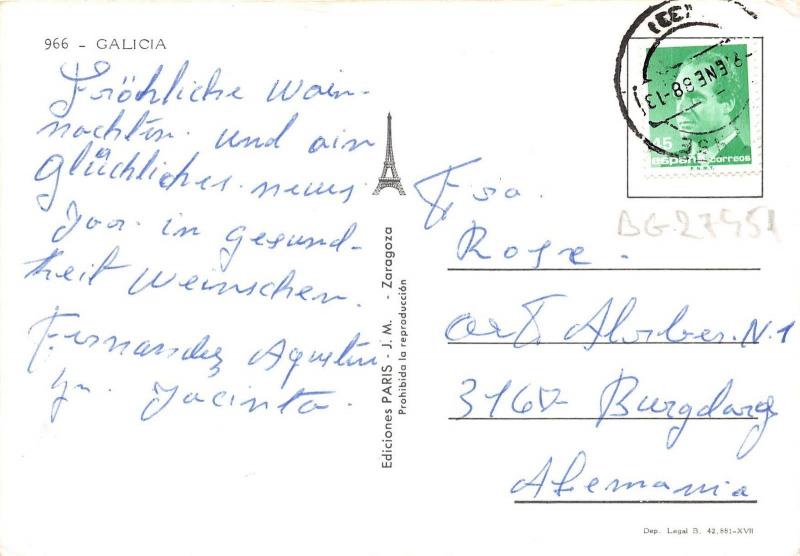 966 - GALICIA
Fröhliche Wain-
nachten. und ain
glückliches. neues
Joor. in gesund-
heit Weinschen.
Fernandez Agustin
Jacinto.
Ediciones PARIS - J. M. - Zaragoza
Prohibida la reproducción
(33)
-9.ENE 88-13
45
españa correos
F.N.M.T.
BG-27451
Fra.
Rose.
N.1
3167 Burgdorf
Alemania
Dep. Legal B. 42.881-XVII